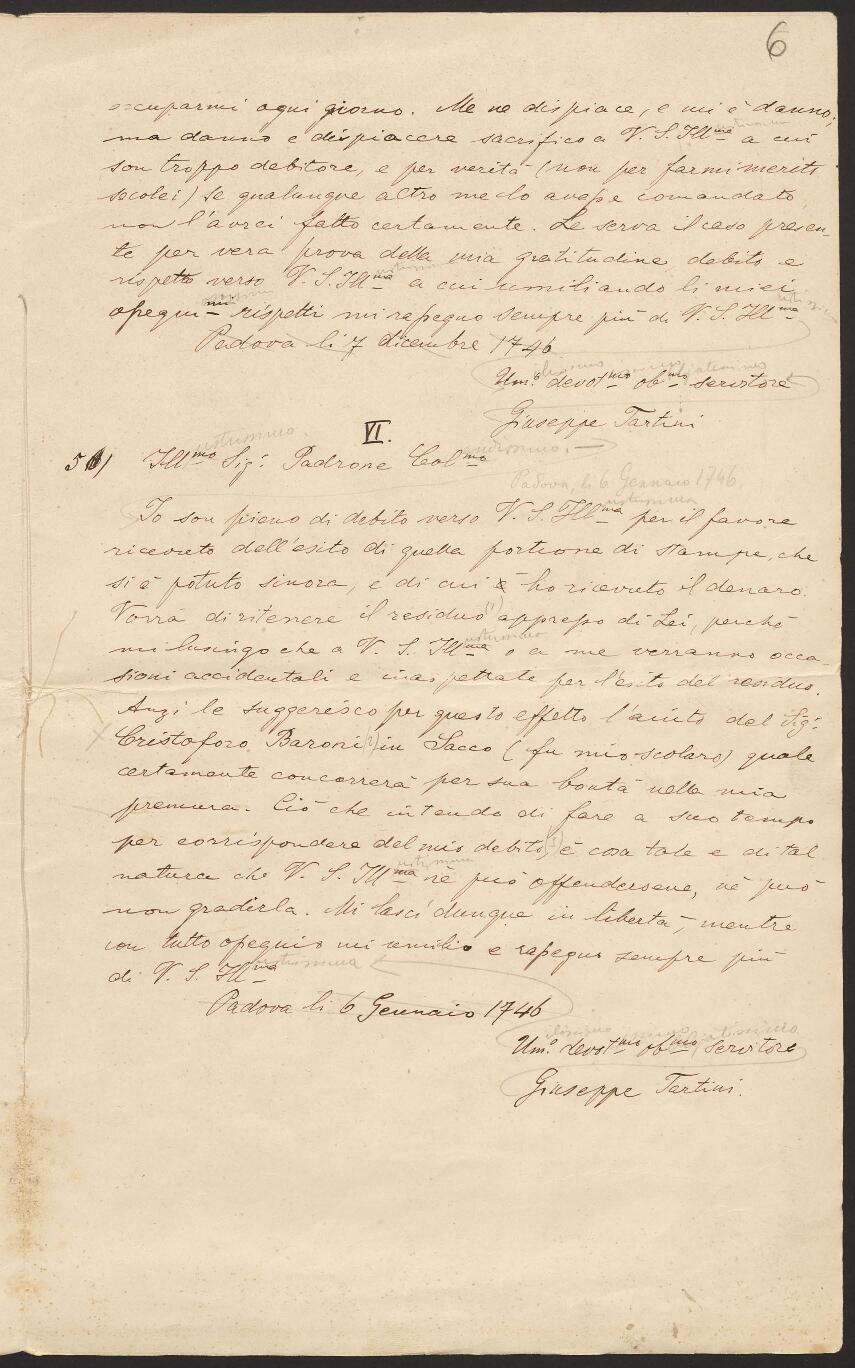 6
occuparmi ogni giorno. Me ne dispiace, e mi è danno;
ma danno e dispiacere sacrifico a V. S. Ill.ma a cui
son troppo debitore, e per verità (non per farmi merito
secolei) se qualunque altro me lo avesse comandato,
non l'avrei fatto certamente. Le serva il caso presen-
te per vera prova della mia gratitudine, debito e
rispetto verso V. S. Ill.ma a cui umiliando li miei
ossequi.mi rispetti mi rassegno sempre più di V. S. Ill.ma
Padova li 7 dicembre 1746
Um.o devot.mo ob.mo servitore
Giuseppe Tartini
VI.
5) Ill.mo Sig.r Padrone Col.mo
Padova, li 6 Gennaio 1746.
Io son pieno di debito verso V. S. Ill.ma per il favore
ricevuto dell'esito di quella portione di stampe, che
si è potuto sinora, e di cui ho ricevuto il denaro.
Vorrà di ritenere il residuo (1) appresso di Lei, perchè
mi lusingo che a V. S. Ill.ma o a me verranno occa-
sioni accidentali e inaspettate per l'esito del residuo.
Anzi le suggerisco per questo effetto l'aiuto del Sig.r
Cristoforo Baroni (2) in Sacco (fu mio scolaro) quale
certamente concorrerà per sua bontà nella mia
premura. Ciò che intendo di fare a suo tempo
per corrispondere del mio debito, è cosa tale e di tal
natura che V. S. Ill.ma nè può offendersene, nè può
non gradirla. Mi lasci dunque in libertà, mentre
con tutto ossequio mi umilio e rassegno sempre più
di V. S. Ill.ma
Padova li 6 Gennaio 1746
Um.o devot.mo ob.mo servitore
Giuseppe Tartini.